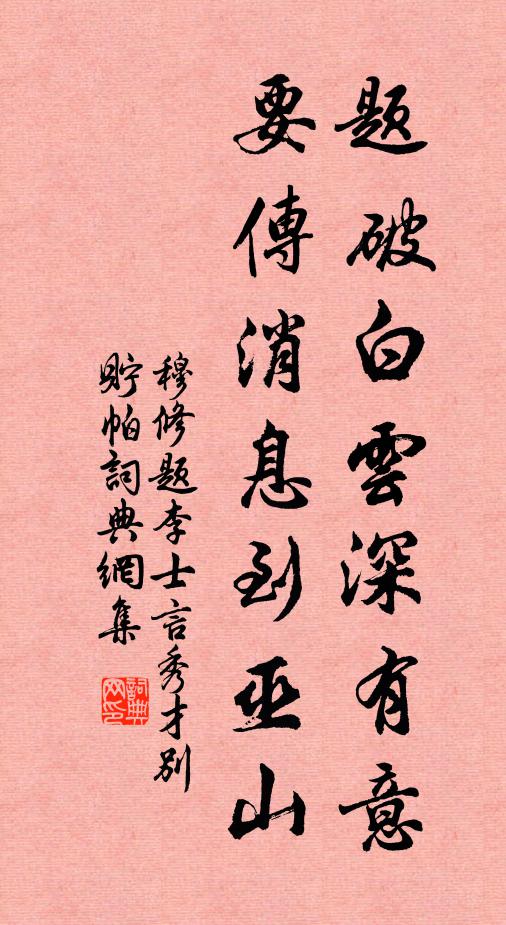 題破白雲深有意
要傳消息到巫山
穆修題李士言秀才別
貯帕詞典網集
詞典網印